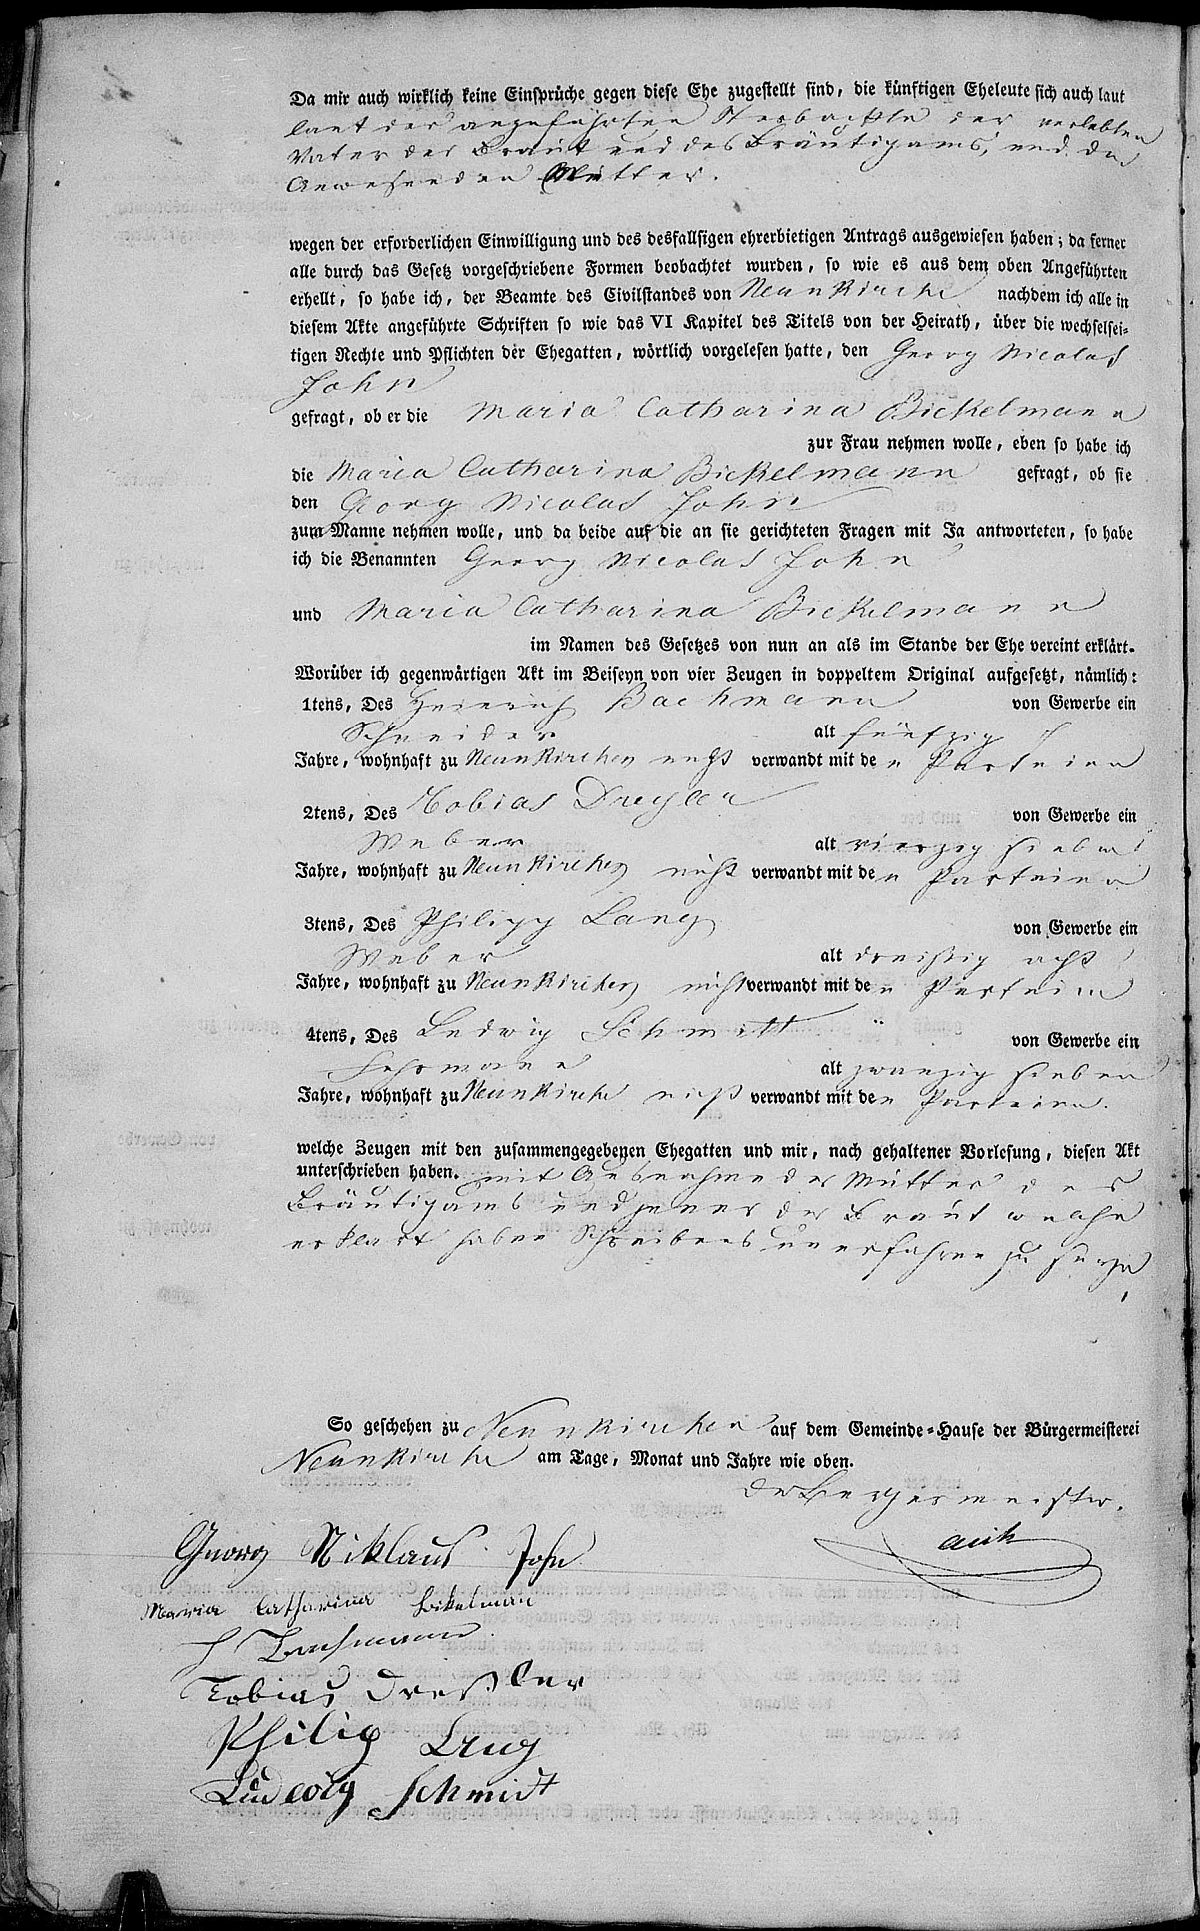 Da mir auch wirklich keine Einsprüche gegen diese Ehe zugestellt sind, die künftigen Eheleute sich auch laut
laut der angeführten Sterbackte der verlebten
Vater der Braut und des Bräutigams, und der
Anwesenden Mutter.
wegen der erforderlichen Einwilligung und des desfallsigen ehrerbietigen Antrags ausgewiesen haben; da ferner
alle durch das Gesetz vorgeschriebene Formen beobachtet wurden, so wie es aus dem oben Angeführten
erhellt, so habe ich, der Beamte des Civilstandes von Neunkirche nachdem ich alle in
diesem Akte angeführte Schriften so wie das VI Kapitel des Titels von der Heirath, über die wechselsei-
tigen Rechte und Pflichten der Ehegatten, wörtlich vorgelesen hatte, den Georg Nicolas
John
gefragt, ob er die Maria Catharina Bickelmann
zur Frau nehmen wolle, eben so habe ich
die Maria Catharina Bickelmann gefragt, ob sie
den Georg Nicolas John
zum Manne nehmen wolle, und da beide auf die an sie gerichteten Fragen mit Ja antworteten, so habe
ich die Benannten Georg Nicolas John
und Maria Catharina Bickelmann
im Namen des Gesetzes von nun an als im Stande der Ehe vereint erklärt.
Worüber ich gegenwärtigen Akt im Beiseyn von vier Zeugen in doppeltem Original aufgesetzt, nämlich:
1tens, Des Heinrich Bachmann von Gewerbe ein
Schneider alt fünfzig
Jahre, wohnhaft zu Neunkirchen nicht verwandt mit den Parteien
2tens, Des Tobias Dressler von Gewerbe ein
Weber alt vierzig sieben
Jahre, wohnhaft zu Neunkirchen nicht verwandt mit den Parteien
3tens, Des Philipp Lang von Gewerbe ein
Weber alt dreißig acht
Jahre, wohnhaft zu Neunkirchen nicht verwandt mit den Parteien
4tens, Des Ludwig Schmitt von Gewerbe ein
alt zwanzig sieben
Jahre, wohnhaft zu Neunkirche nicht verwandt mit den Parteien.
welche Zeugen mit den zusammengegebenen Ehegatten und mir, nach gehaltener Vorlesung, diesen Akt
unterschrieben haben. mit Ausnahme der Mutter des
Bräutigams und jener der Braut welche
erklärt haben Schreibens unerfahren zu seyn
So geschehen zu Neunkirchen auf dem Gemeinde-Hause der Bürgermeisterei
Neunkirche am Tage, Monat und Jahre wie oben.
Der Burgermeister.
Georg Niklaus John
Maria Catharina Bickelman
H Bachmann
Tobias Dreßler
Philip Lang
Ludwig Schmidt